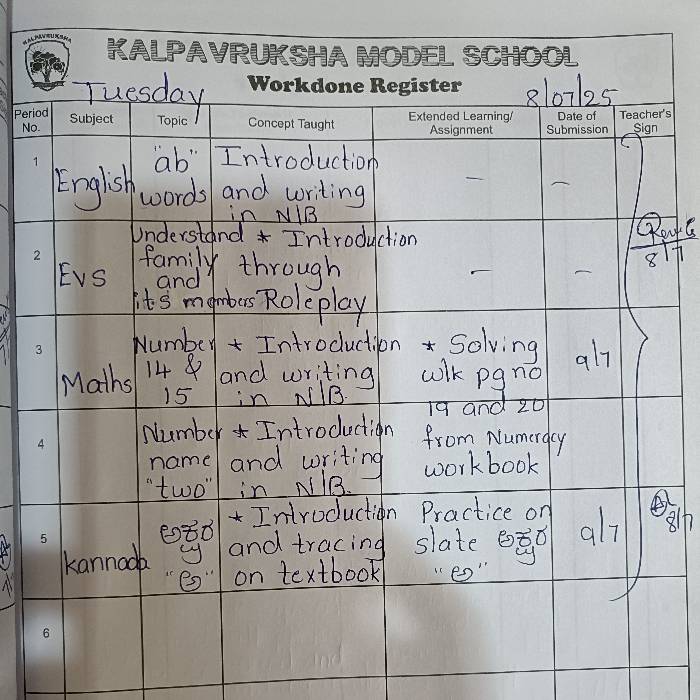 KALPAVRUKSHA
KALPAVRUKSHA MODEL SCHOOL
Workdone Register
Tuesday 8/07/25
Period No. Subject Topic Concept Taught Extended Learning/ Assignment Date of Submission Teacher's Sign
1 English "ab" words Introduction and writing in N/B — —
2 EVS Understand family and its members * Introduction through Roleplay — —
8/7
3 Maths Number 14 & 15 * Introduction and writing in N/B. * Solving w/k pg no 19 and 20 from Numeracy workbook 9/7
4 Number name "two" * Introduction and writing in N/B.
5 kannada ಅಕ್ಷರ "ಅ" * Introduction and tracing on textbook Practice on slate ಅಕ್ಷರ "ಅ" 9/7
8/7
6